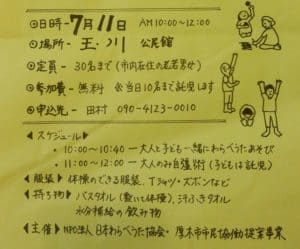 ◎日時- 7月11日 AM10:00~12:00
◎場所- 玉・川 公民館
◎定員- 30名まで(市内在住の老若男女)
◎参加費- 無料 ※当日10名まで託児します
◎申込先- 田村 090-4123-0010
◀スケジュール▶
・10:00~10:40 ー大人と子ども一緒にわらべうたあそび
・11:00~12:00 ー大人のみ自彊術(子どもは託児)
◀服装▶ 体操のできる服装、Tシャツ・ズボンなど
◀持ち物▶ バスタオル(敷いて体操)、汗ふきタオル
水分補給の飲み物
◀主催▶ NPO法人 日本わらべうた協会・厚木市市民協働提案事業